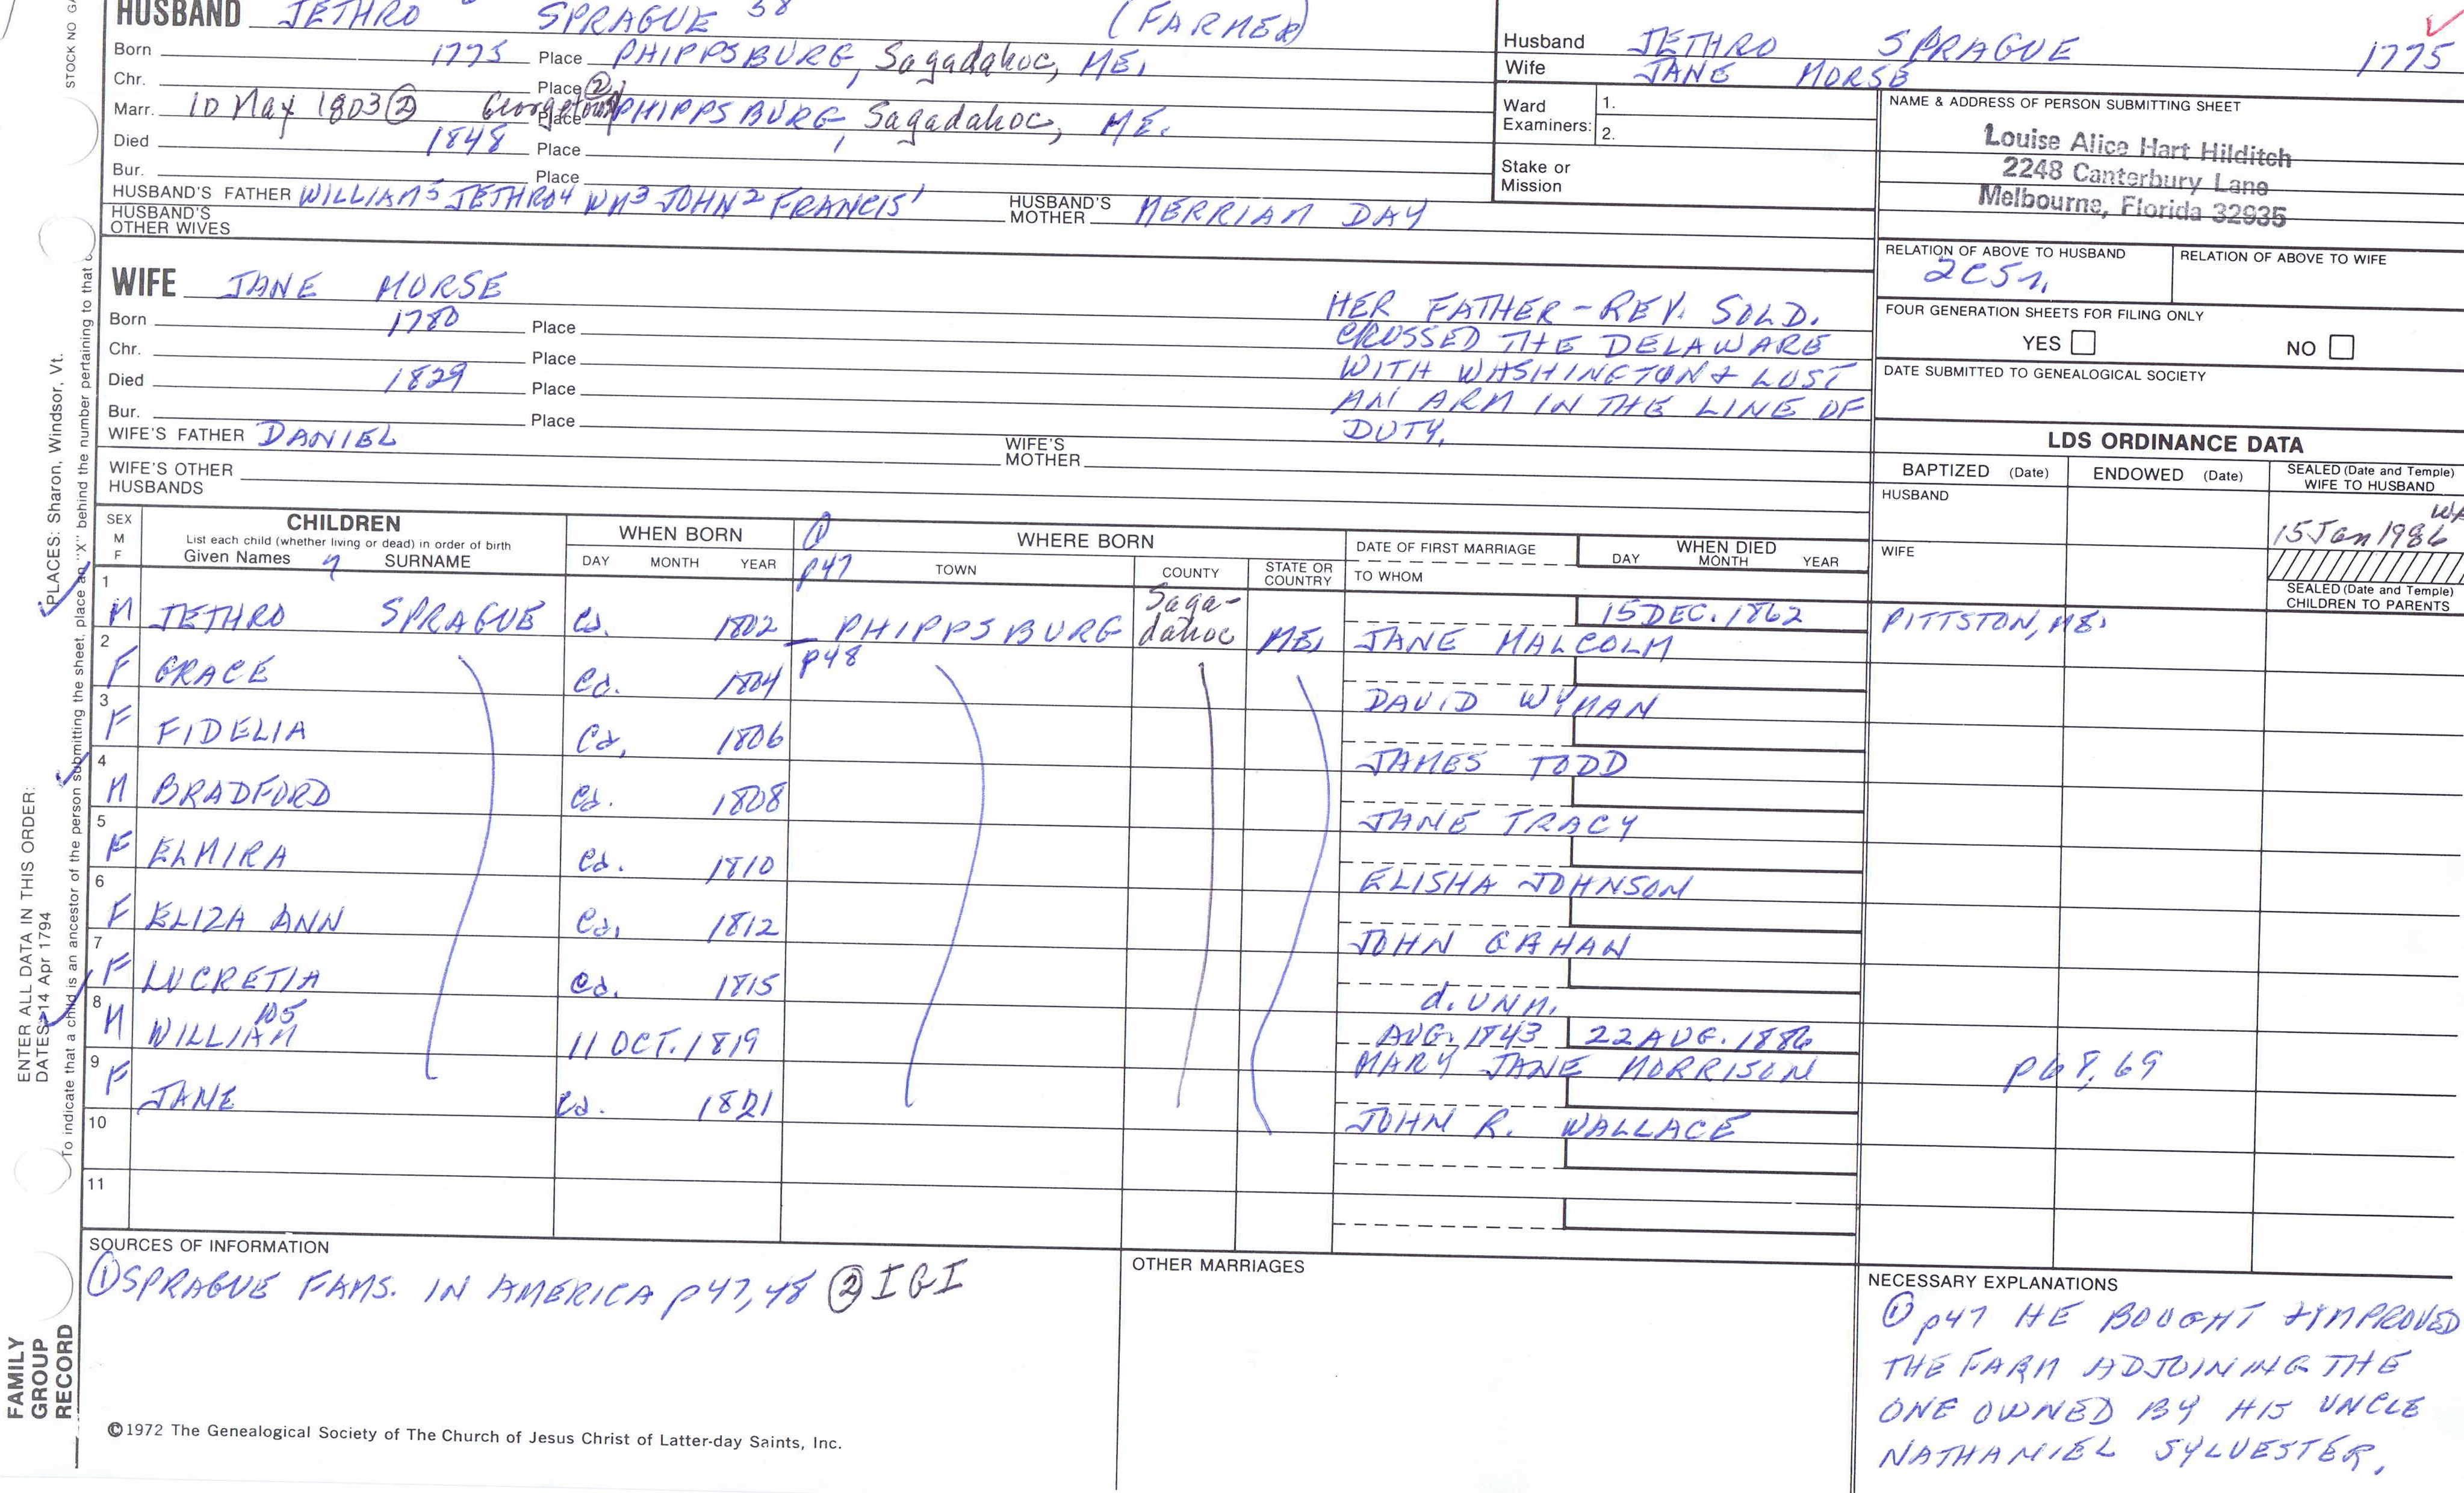 HUSBAND JETHRO SPRAGUE 38 (FARMER)
Born 1775 Place PHIPPSBURG, Sagadahoc, ME.
Chr. Place ②
Marr. 10 May 1803 ② Georgetown Place PHIPPSBURG, Sagadahoc, ME.
Died 1848 Place
Bur. Place
HUSBAND'S FATHER WILLIAM5 JETHRO4 WM3 JOHN2 FRANCIS1 HUSBAND'S MOTHER MERRIAM DAY
HUSBAND'S OTHER WIVES
Husband JETHRO SPRAGUE 1775
Wife JANE MORSE
Ward Examiners: 1.
2.
Stake or Mission
NAME & ADDRESS OF PERSON SUBMITTING SHEET
Louise Alice Hart Hilditch
2248 Canterbury Lane
Melbourne, Florida 32935
RELATION OF ABOVE TO HUSBAND RELATION OF ABOVE TO WIFE
2C5r.
FOUR GENERATION SHEETS FOR FILING ONLY
YES NO
DATE SUBMITTED TO GENEALOGICAL SOCIETY
WIFE JANE MORSE
Born 1780 Place
Chr. Place
Died 1829 Place
Bur. Place
WIFE'S FATHER DANIEL WIFE'S MOTHER
WIFE'S OTHER HUSBANDS
HER FATHER - REV. SOLD.
CROSSED THE DELAWARE
WITH WASHINGTON & LOST
AN ARM IN THE LINE OF
DUTY.
LDS ORDINANCE DATA
BAPTIZED (Date) ENDOWED (Date) SEALED (Date and Temple) WIFE TO HUSBAND
HUSBAND
15 Jan 1986
WIFE
SEALED (Date and Temple) CHILDREN TO PARENTS
SEX M F CHILDREN WHEN BORN ① WHERE BORN DATE OF FIRST MARRIAGE WHEN DIED
List each child (whether living or dead) in order of birth
Given Names 7 SURNAME DAY MONTH YEAR p47 TOWN COUNTY STATE OR COUNTRY TO WHOM DAY MONTH YEAR
1 M JETHRO SPRAGUE Ca. 1802 PHIPPSBURG Saga-dahoc ME. 15 DEC. 1862 JANE MALCOLM PITTSTON, ME.
2 F GRACE Ca. 1804 p48 DAVID WYMAN
3 F FIDELIA Ca. 1806 JAMES TODD
4 M BRADFORD Ca. 1808 JANE TRACY
5 F ELMIRA Ca. 1810 ELISHA JOHNSON
6 F ELIZA ANN Ca. 1812 JOHN GAHAN
7 F LUCRETIA Ca. 1815 d. UNM.
8 M WILLIAM 105 11 OCT. 1819 AUG. 1843 22 AUG. 1886 MARY JANE MORRISON p68, 69
9 F JANE Ca. 1821 JOHN R. WALLACE
10
11
SOURCES OF INFORMATION
① SPRAGUE FAMS. IN AMERICA p47, 48 ② IGI
OTHER MARRIAGES
NECESSARY EXPLANATIONS
① p47 HE BOUGHT & IMPROVED
THE FARM ADJOINING THE
ONE OWNED BY HIS UNCLE
NATHANIEL SYLVESTER.
©1972 The Genealogical Society of The Church of Jesus Christ of Latter-day Saints, Inc.
STOCK NO
PLACES: Sharon, Windsor, Vt.
To indicate that a child is an ancestor of the person submitting the sheet, place an "X" behind the number pertaining to that
ENTER ALL DATA IN THIS ORDER:
DATES: 14 Apr 1794
FAMILY
GROUP
RECORD